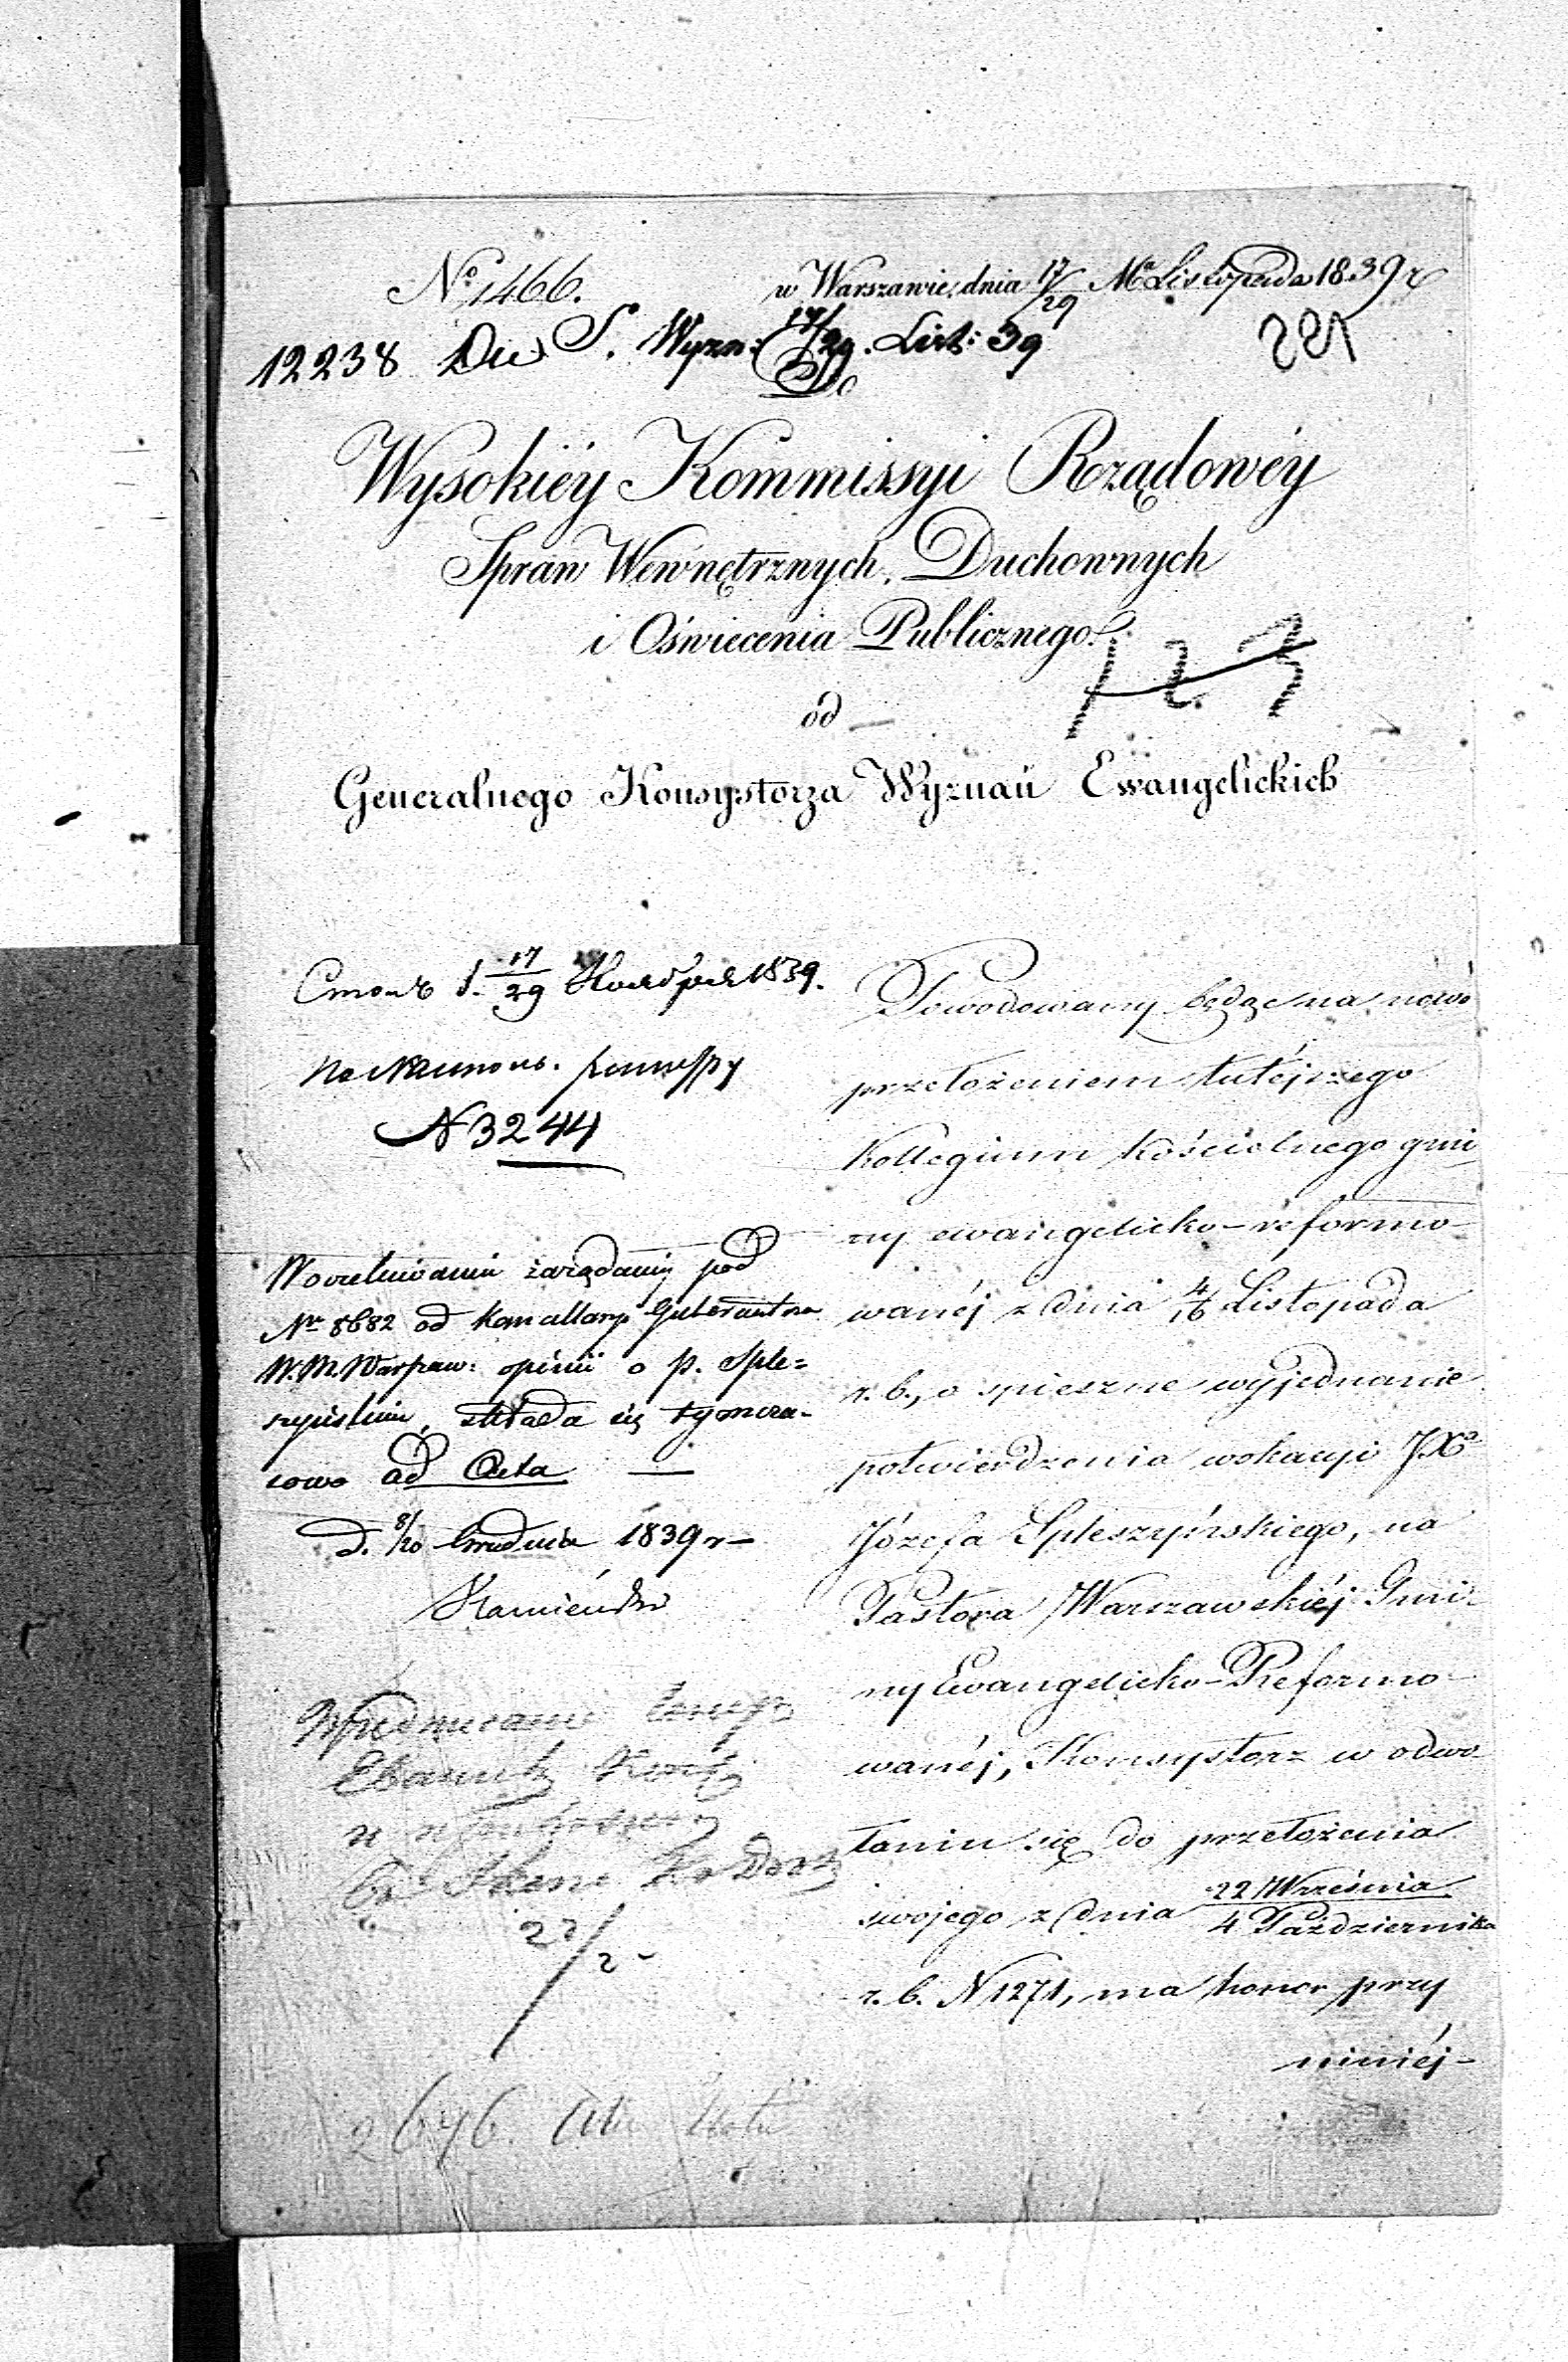 No 1466.
w Warszawie, dnia 17/29 Mca Listopada 1839 r
12238 Du S. Wyzn: 17/29. List: 39
221
Do
Wysokiéy Kommissyi Rządowéy
Spraw Wewnętrznych, Duchownych
i Oświecenia Publicznego.
od
Generalnego Konsystorza Wyznań Ewangelickich
17/29 1839.
N 3244
W oczekiwaniu żądaniy pod
Nr 8682 od Kancellaryi Gubernatora
W. M. Warszaw: opinii o p. Sple=
szyńskim, składa się tymcza-
sowo ad Acta —
D. 8/20 Grudnia 1839 r —
Kamieński
Powodowany będąc na nowo
przełożeniem tutéjszego
Kollegium Kościelnego gmi
ny ewangelicko-reformo-
wanéj z dnia 4/16 Listopada
r. b., o spieszne wyjednanie
potwierdzenia wokacyi JXa
Józefa Spleszyńskiego, na
Pastora Warszawskiéj Gmi-
ny Ewangelicko-Reformo-
wanéj, Konsystorz w odwo-
łaniu się do przełożenia
swojego z dnia 22 Września
4 Października
r. b. N 1271, ma honor przy
niniéj-
22/2
2646.